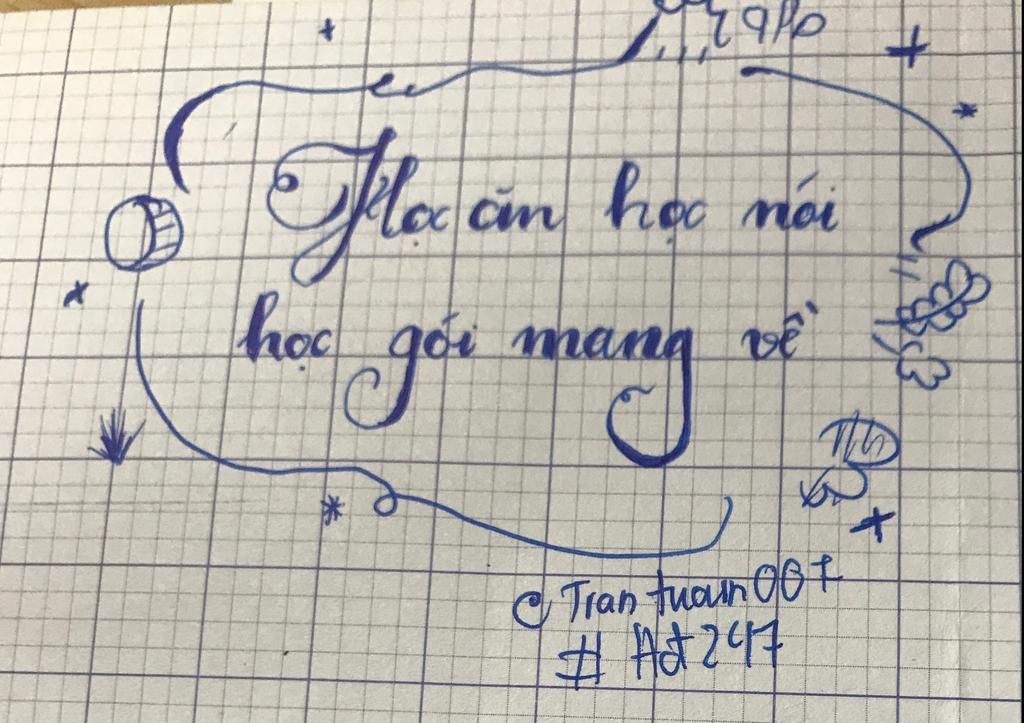 Học ăn học nói
học gói mang về
@Trantuan007
# Hđt247